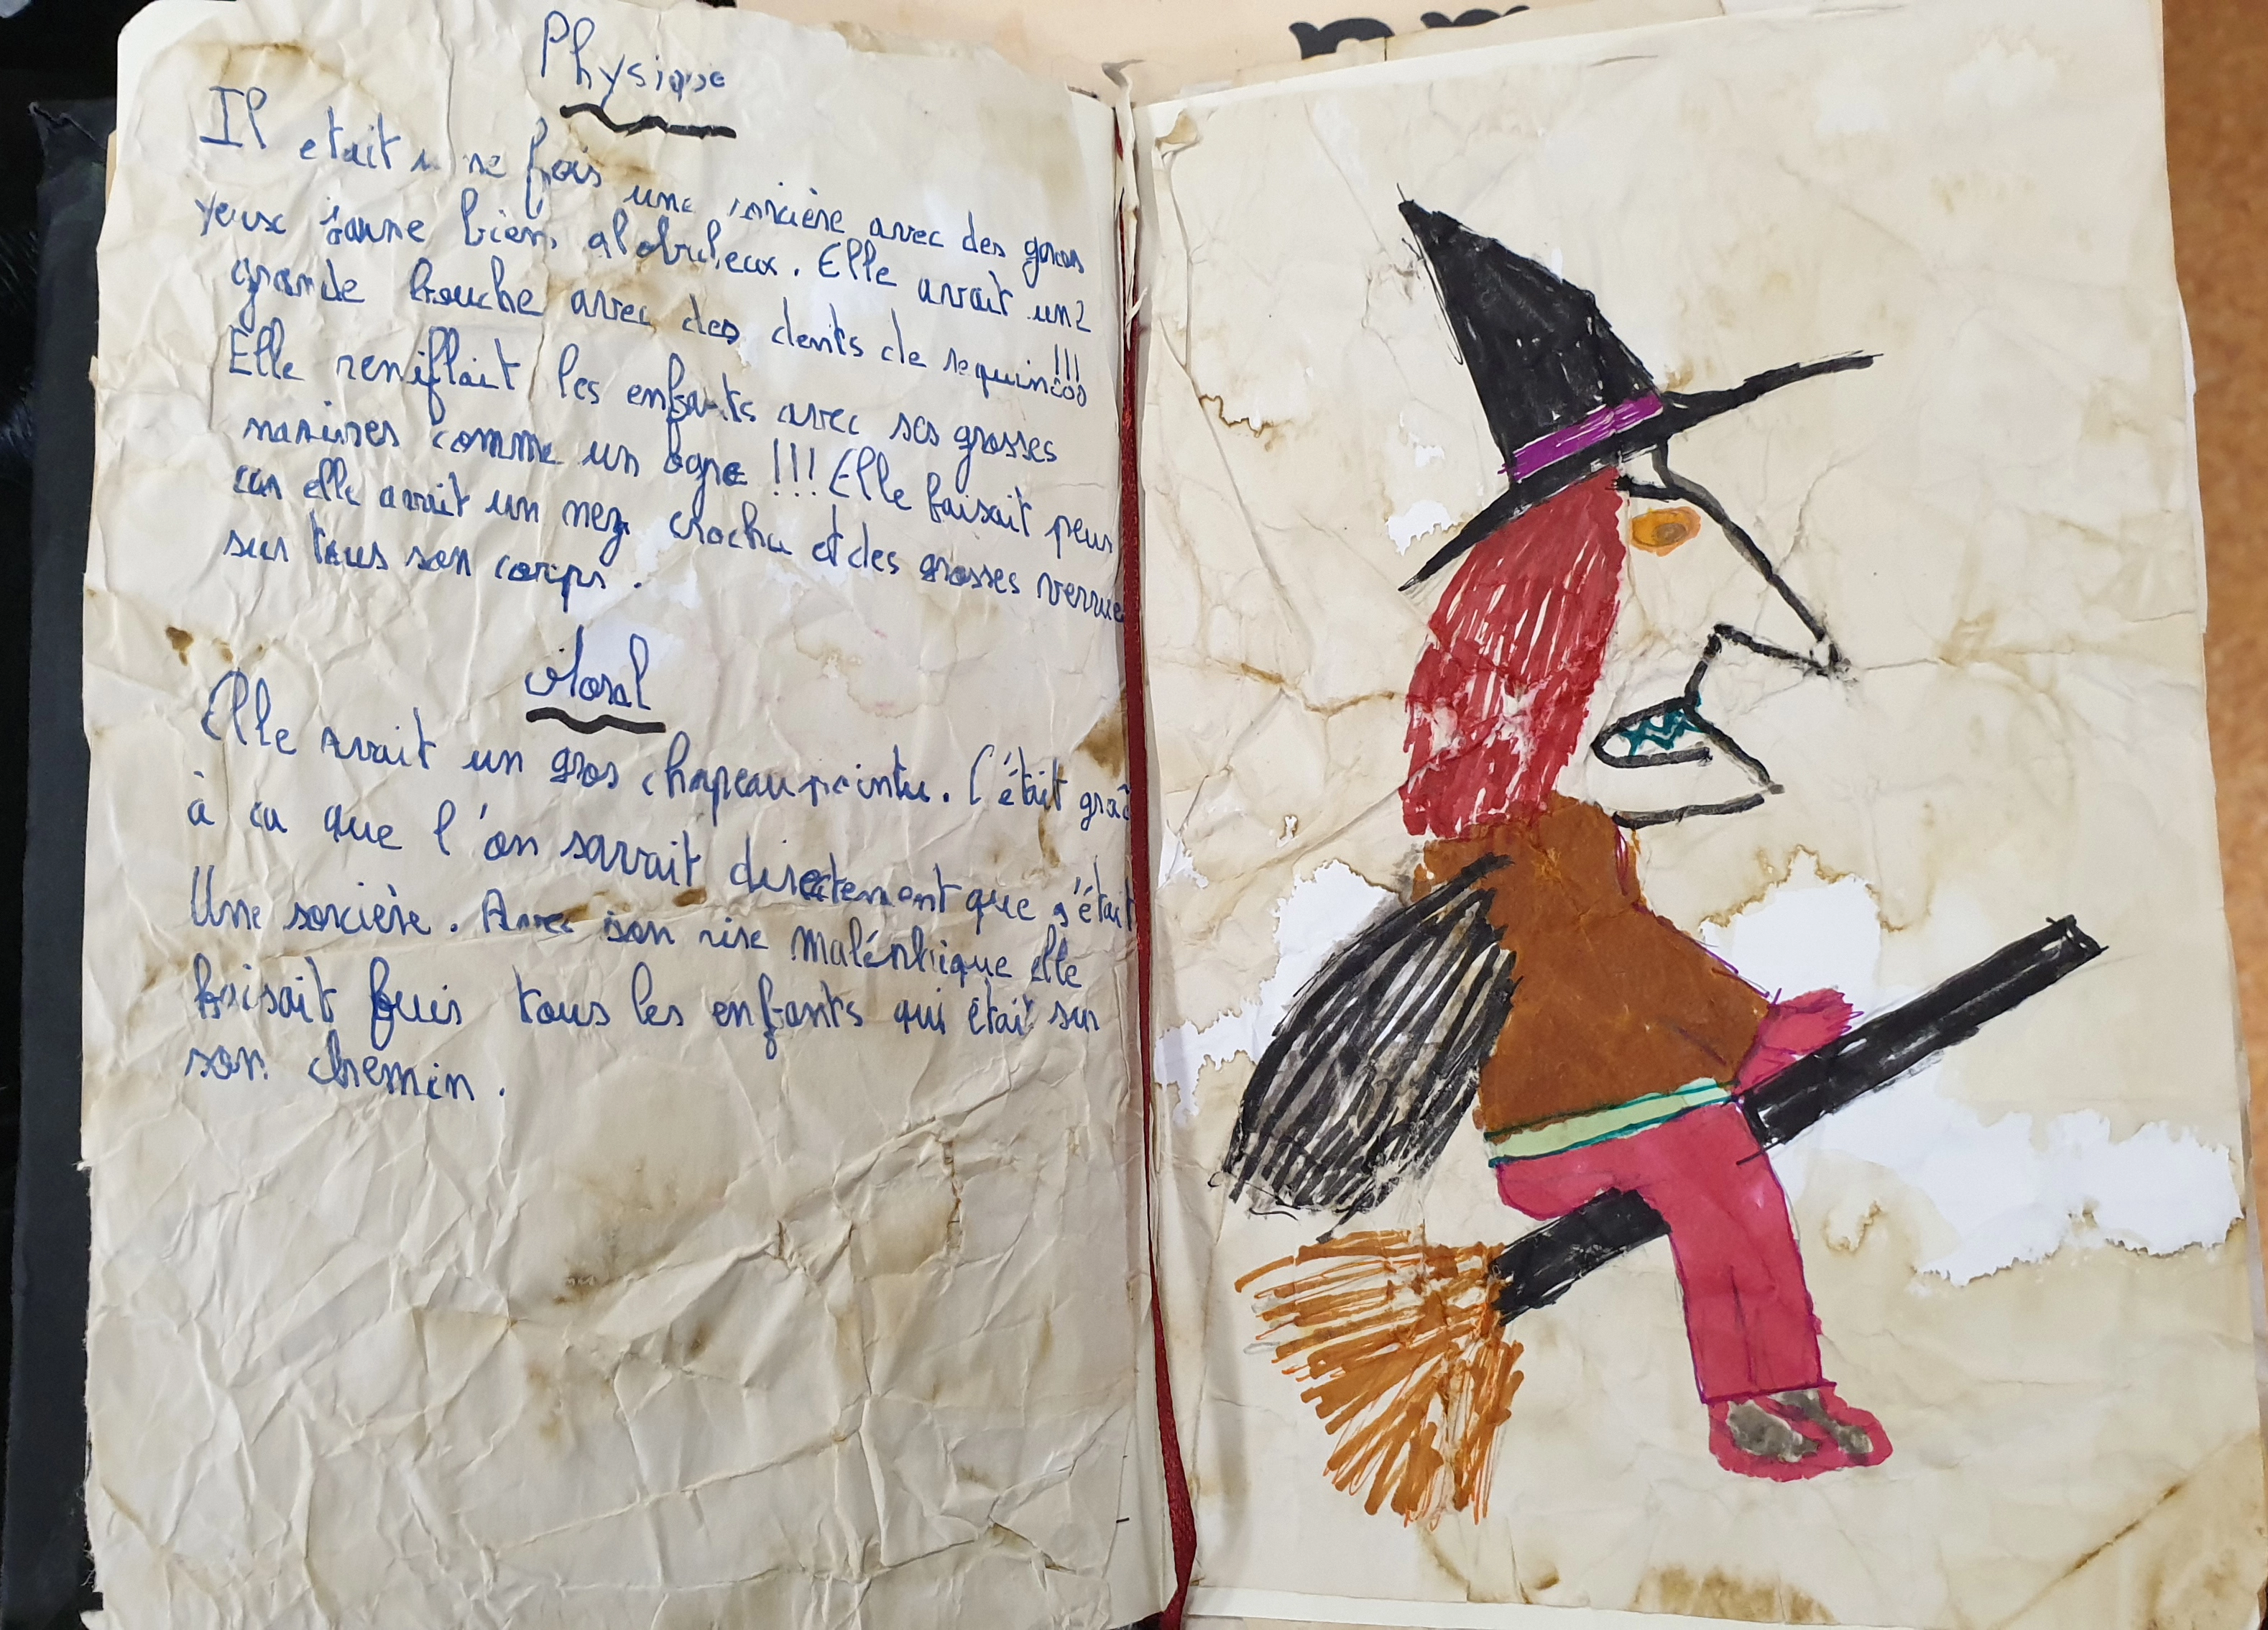 Physique
Il etait une fois une sorcière avec des gross
yeux jaune bien globuleux. Elle avait une
grande bouche avec des dents de requin !!!
Elle reniflait les enfants avec ses grosses
narines comme un ogre !!! Elle faisait peur
car elle avait un nez crochu et des grosses verrue
sur tous son corps.
Moral
Elle avait un gros chapeau pointu. C'était grâc
à ca que l'on savait directement que s'était
Une sorcière. Avec son rire maléphique elle
faisait fuir tous les enfants qui était sur
son chemin.